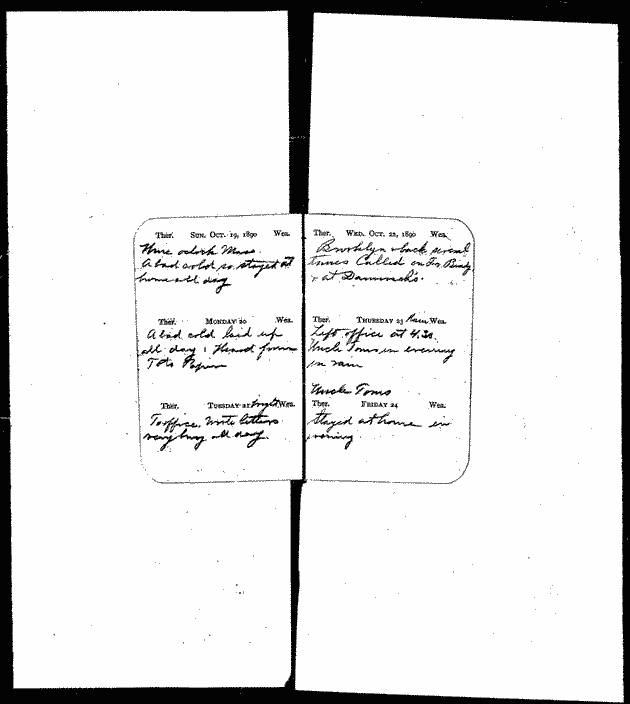 Ther. SUN. OCT. 19, 1890 Wea.
Nine oclock Mass.
A bad cold so stayed at
home all day
Ther. MONDAY 20 Wea.
A bad cold laid up
all day. Heard from
Ther. TUESDAY 21 bright Wea.
To office. Wrote letters
very busy all day.
Ther. WED. OCT. 22, 1890 Wea.
Brooklyn & back several
times Called on Fr. Brady
& at
Ther. THURSDAY 23 Rain Wea.
Left office at 4.30.
Uncle Toms in evening
in rain
Uncle Toms
Ther. FRIDAY 24 Wea.
Stayed at home in
evening